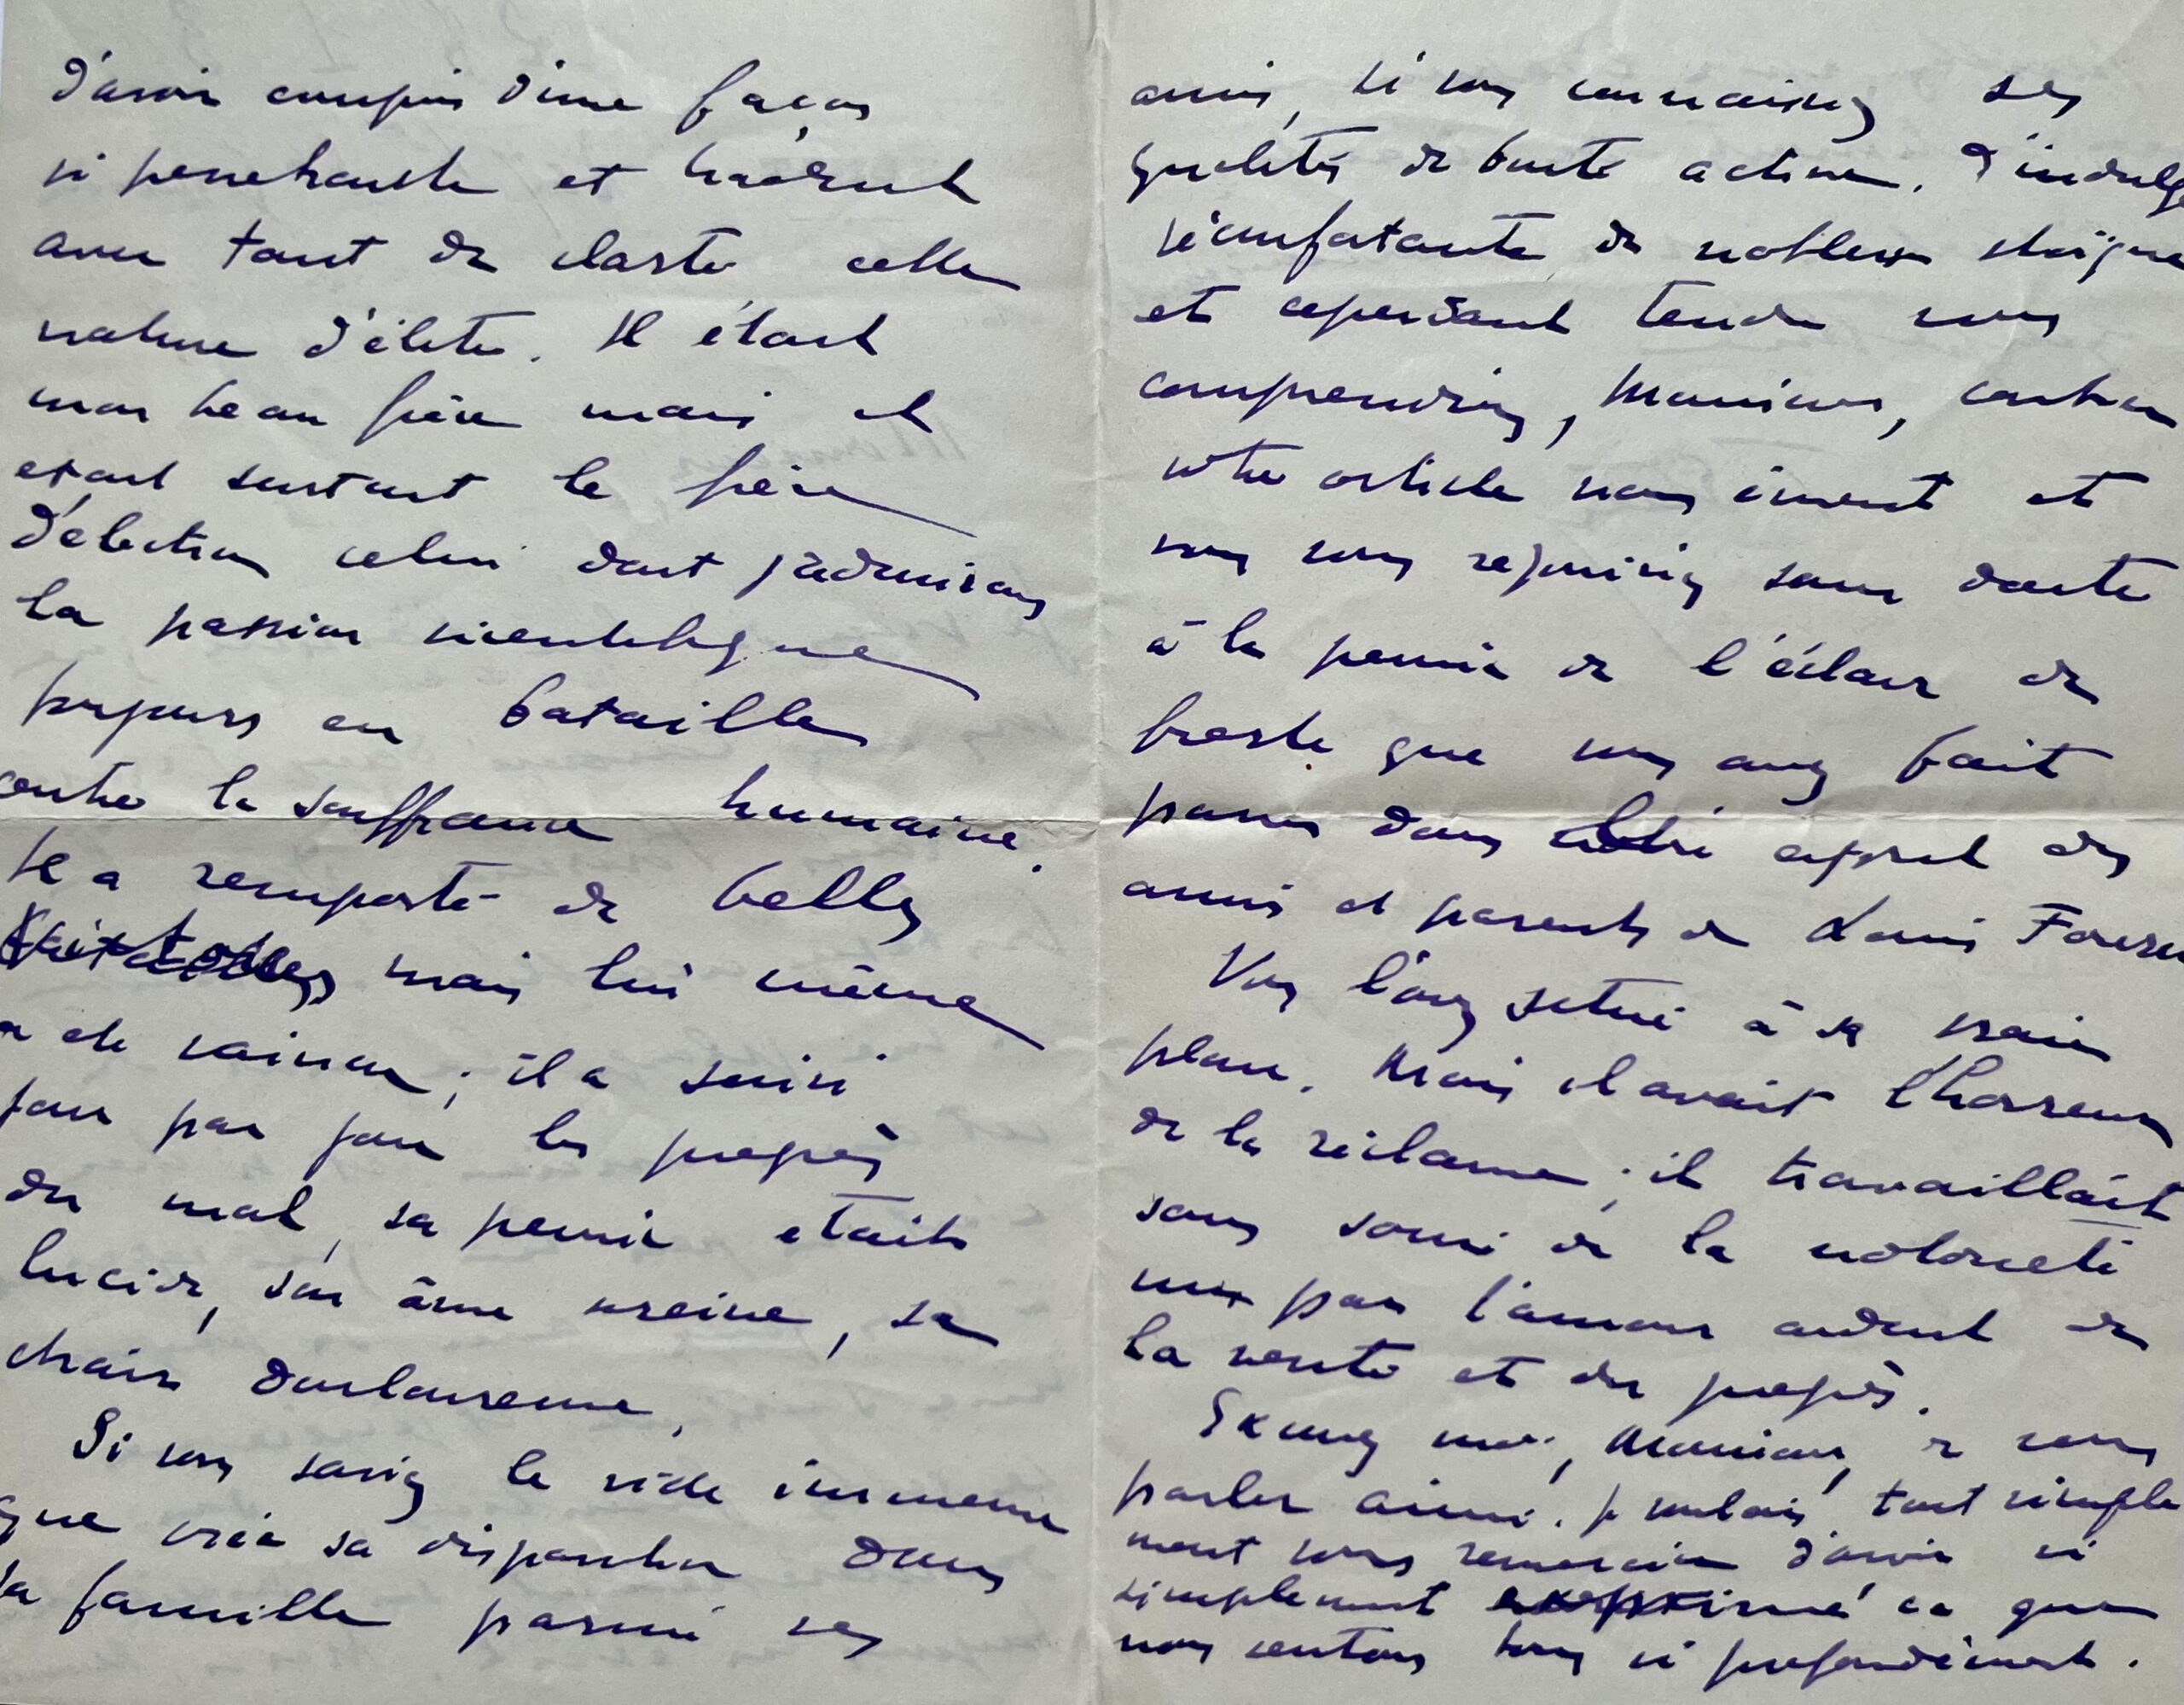 d'avoir compris d'une façon
si penetrante et traduit
avec tant de clarté cette
nature d'élite. Il était
mon beau frère mais il
etait surtout le frère
d'élection celui dont j'admirais
la passion scientifique
toujours en bataille
contre la souffrance humaine.
Il a remporté de belles
victoires mais lui même
a ete vaincu ; il a suivi
jour par jour les progrès
du mal, sa pensée etait
lucide, son âme sereine, sa
chair douloureuse.
Si vous saviez le vide immense
que crée sa disparition dans
sa famille parmi ses
amis, si vous connaissiez ses
qualités de bonté active, d'indulg
réconfortante, de noblesse stoïque
et cependant tendre vous
comprendriez, Monsieur, combien
votre article nous émeut et
nous vous rejouiriez sans doute
à la pensée de l'éclair de
que vous avez fait
passer dans l'esprit des
amis et parents de Louis
Vous l'avez situé à sa vraie
place. Mais il avait l'horreur
de la réclame ; il travaillait
sans souci de la notoriété
mu par l'amour ardent de
la verité et du progrès.
Excusez moi, Monsieur, de vous
parler ainsi. Je voulais tout simple
ment vous remercier d'avoir si
simplement exprimé ce que
nous sentons tous si profondément.